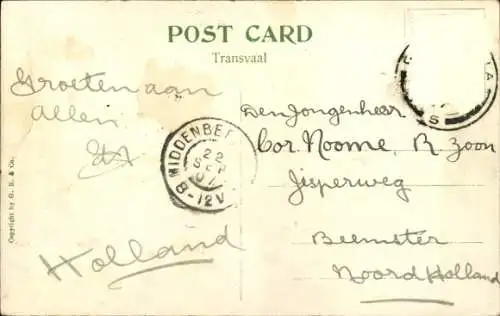 POST CARD
Transvaal
Groeten aan
allen
Holland
MIDDENBE
22
SEP
07
8-12V
Den Jongenheer
Cor. Noome, R. zoon
Jisperweg
Beemster
Noord Holland
Copyright by G. B. & Co.